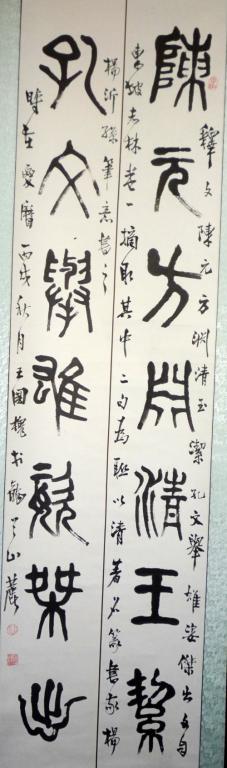 釋文陳元方淵清玉潔孔文舉雄姿傑出
陳元方淵清玉絜
東坡志林卷一摘取其中二句為聯以清著名篆書家楊
楊沂孫筆意書之
孔文舉雄姿桀出
時在夏曆丙戌秋月王國槐书山麓